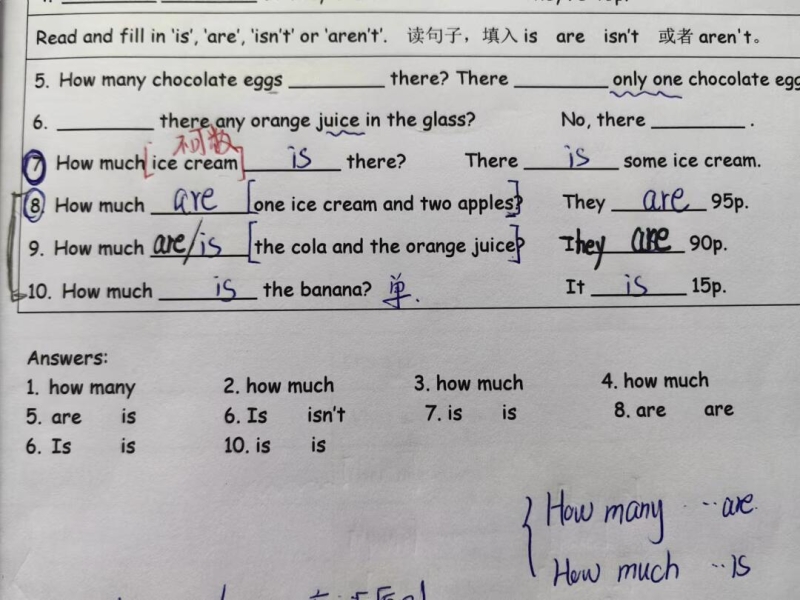 Read and fill in 'is', 'are', 'isn't' or 'aren't'. 读句子，填入 is are isn't 或者 aren't。
5. How many chocolate eggs ________ there? There ________ only one chocolate egg
6. ________ there any orange juice in the glass? No, there ________ .
不可数
7 How much [ice cream] is there? There is some ice cream.
8. How much are [one ice cream and two apples]? They are 95p.
9. How much are/is [the cola and the orange juice]? They are 90p.
10. How much is the banana? 单. It is 15p.
Answers:
1. how many 2. how much 3. how much 4. how much
5. are is 6. Is isn't 7. is is 8. are are
6. Is is 10. is is
How many ·· are.
How much ·· is